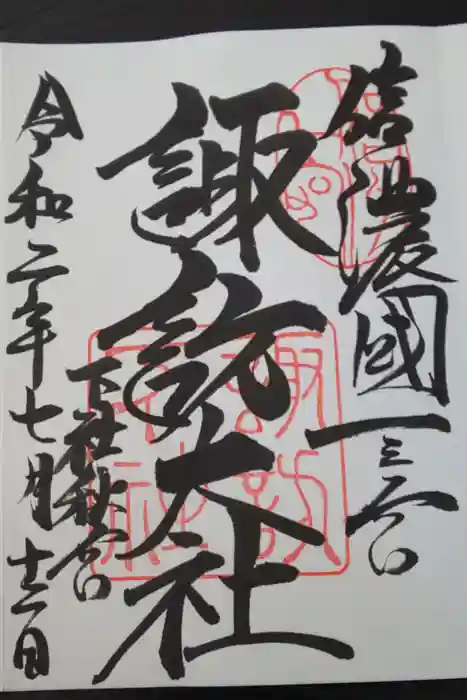 信濃國一之宮
諏訪大社
下社秋宮
令和二年七月十二日
諏訪大社